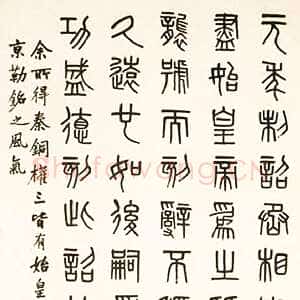 元年制詔丞相
盡始皇帝為之
襲號而刻辭不
久遠也如後嗣為
功盛德刻此詔
余所得秦銅權三皆有始皇
京勒銘之風氣
Shufawang.CN